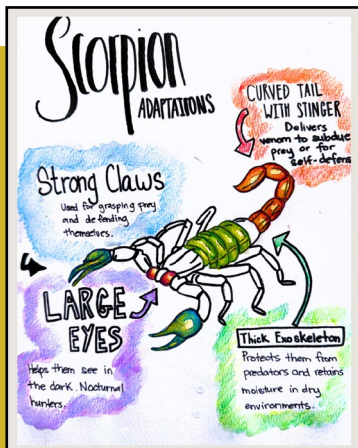 Scorpion
ADAPTATIONS
CURVED TAIL
WITH STINGER
Delivers
venom to subdue
prey or for
self-defens
Strong Claws
Used for grasping prey
and defending
themselves.
LARGE
EYES
Helps them see in
the dark. Nocturnal
hunters.
Thick Exoskeleton
Protects them from
predators and retains
moisture in dry
environments.